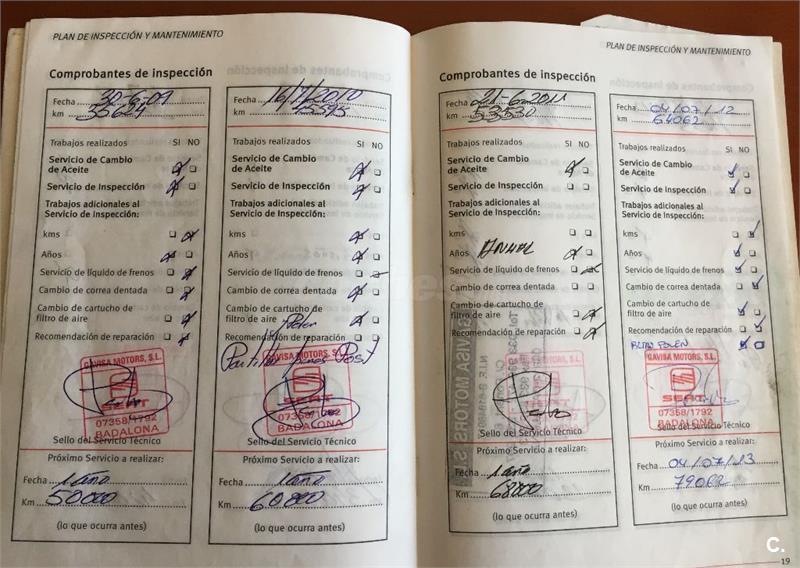 PLAN DE INSPECCIÓN Y MANTENIMIENTO
Comprobantes de inspección
Fecha 30-6-09
km 35624
Trabajos realizados SI NO
Servicio de Cambio
de Aceite
Servicio de Inspección
Trabajos adicionales al
Servicio de Inspección:
kms
Años
Servicio de líquido de frenos
Cambio de correa dentada
Cambio de cartucho de
filtro de aire
Recomendación de reparación
GAVISA MOTORS, S.L.
SEAT
07358/1792
BADALONA
Sello del Servicio Técnico
Próximo Servicio a realizar:
Fecha 1 año
Km 50000
(lo que ocurra antes)
Fecha 16/7/2010
km
Trabajos realizados SI NO
Servicio de Cambio
de Aceite
Servicio de Inspección
Trabajos adicionales al
Servicio de Inspección:
kms
Años
Servicio de líquido de frenos
Cambio de correa dentada
Cambio de cartucho de
filtro de aire
Polen
Recomendación de reparación
Post
GAVISA MOTORS, S.L.
SEAT
07358/1792
BADALONA
Sello del Servicio Técnico
Próximo Servicio a realizar:
Fecha 1 año
Km 60000
(lo que ocurra antes)
PLAN DE INSPECCIÓN Y MANTENIMIENTO
Comprobantes de inspección
Fecha 21-6-2011
km 53530
Trabajos realizados SI NO
Servicio de Cambio
de Aceite
Servicio de Inspección
Trabajos adicionales al
Servicio de Inspección:
kms
Años ANUAL
Servicio de líquido de frenos
Cambio de correa dentada
Cambio de cartucho de
filtro de aire
Recomendación de reparación
GAVISA MOTORS S
Sello del Servicio Técnico
Próximo Servicio a realizar:
Fecha 1 año
Km 68000
(lo que ocurra antes)
Fecha 04/07/12
km 64062
Trabajos realizados SI NO
Servicio de Cambio
de Aceite
Servicio de Inspección
Trabajos adicionales al
Servicio de Inspección:
kms
Años
Servicio de líquido de frenos
Cambio de correa dentada
Cambio de cartucho de
filtro de aire
Recomendación de reparación
FILTRO POLEN
GAVISA MOTORS, S.L.
SEAT
07358/1792
BADALONA
Sello del Servicio Técnico
Próximo Servicio a realizar:
Fecha 04/07/13
Km 79062
(lo que ocurra antes)
19
C.